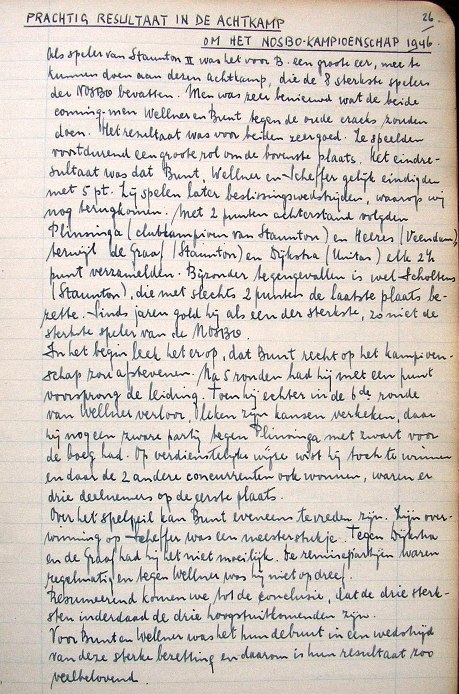 PRACHTIG RESULTAAT IN DE ACHTKAMP
26.
OM HET NOSBO-KAMPIOENSCHAP 1946.
Als speler van Staunton II was het voor B. een groote eer, mee te
kunnen doen aan deren achtkamp, die de 8 sterkste spelers
der NOSBO bevatten. Men was zeer benieuwd wat de beide
coming-men Wellner en Bunt tegen de oude cracks zouden
doen. Het resultaat was voor beiden zeer goed. Ze speelden
voortdurend een groote rol om de bovenste plaats. Het eindre-
sultaat was dat Bunt, Wellner en Scheffer gelijk eindigden
met 5 pt. Zij spelen later beslissingswedstrijden, waarop wij
nog terugkomen. Met 2 punten achterstand volgden
Plinsinga (clubkampioen van Staunton) en Heeres (Veendam),
terwijl de Graaf (Staunton) en Dijkstra (Unitas) elk 2½
punt verzamelden. Bijzonder tegengevallen is wel Scholtens
(Staunton), die met slechts 2 punten de laatste plaats be-
zette. Sinds jaren gold hij als een der sterkste, zo niet de
sterkste speler van de NOSBO.
In het begin leek het erop, dat Bunt recht op het kampioen-
schap zou afstevenen. Na 5 ronden had hij met een punt
voorsprong de leiding. Toen hij echter in de 6de ronde
van Wellner verloor, leken zijn kansen verkeken, daar
hij nog een zware partij tegen Plinsinga met zwart voor
de boeg had. Op verdienstelijke wijze wist hij toch te winnen
en daar de 2 andere concurrenten ook wonnen, waren er
drie deelnemers op de eerste plaats.
Over het spelpeil kan Bunt eveneens tevreden zijn. Zijn over-
winning op Scheffer was een meesterstukje. Tegen Dijkstra
en de Graaf had hij het niet moeilijk. De remisepartijen waren
regelmatig en tegen Wellner was hij niet op dreef.
Resumeerend komen we tot de conclusie, dat de drie sterk-
sten inderdaad de drie hoogstuitkomenden zijn.
Voor Bunt en Wellner was het hun debuut in een wedstrijd
van deze sterke bezetting en daarom is hun resultaat zoo
veelbelovend.